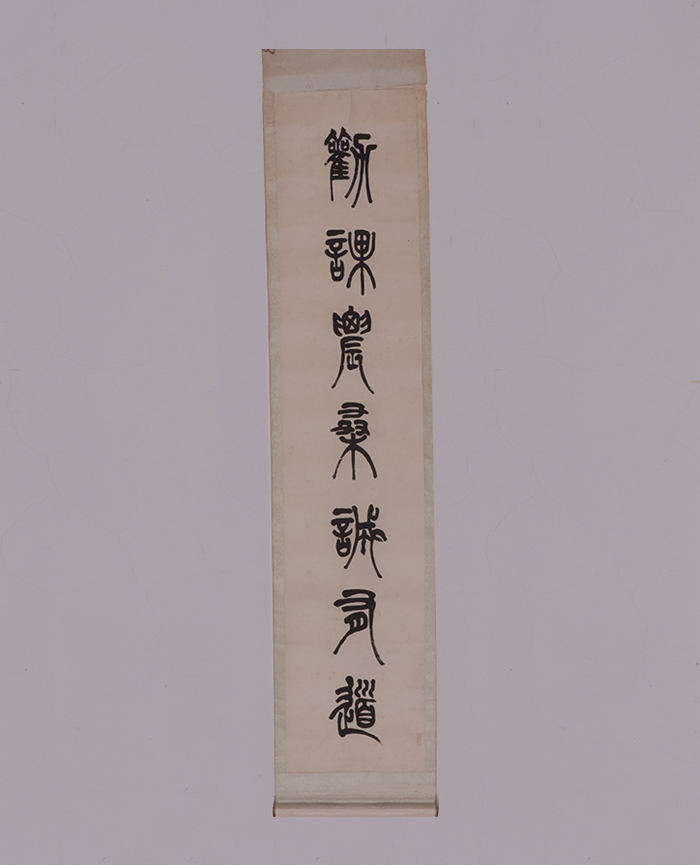 勸課農桑誠有道